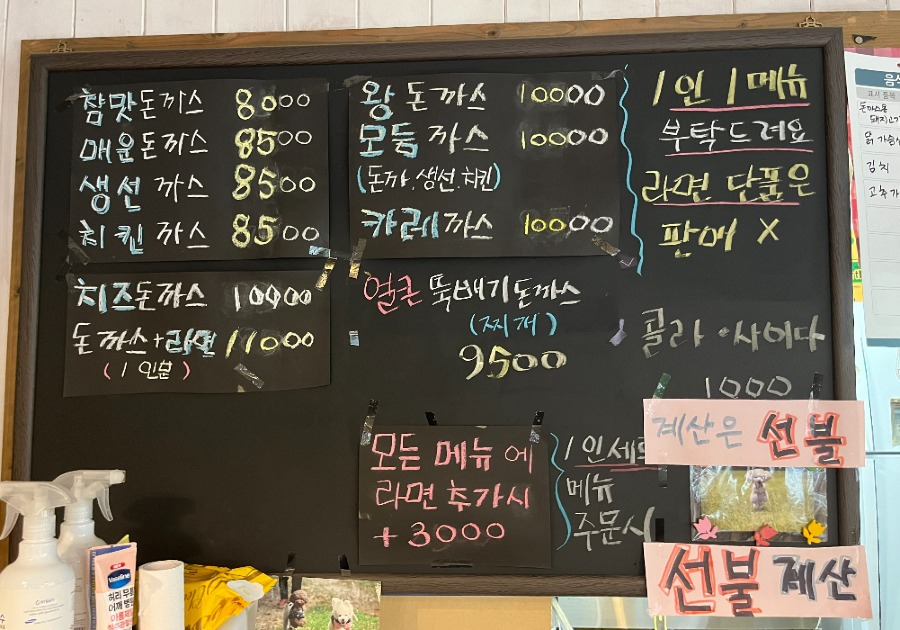 참맛돈까스 8000
매운돈까스 8500
생선까스 8500
치킨까스 8500
치즈돈까스 10000
돈까스+라면 11000
(1인분)
왕돈까스 10000
모듬까스 10000
(돈까.생선.치킨)
카레까스 10000
얼큰뚝배기돈까스
(찌개)
9500
모든 메뉴에
라면추가시
+3000
1인 1메뉴
부탁드려요
라면 단품은
판매 X
콜라·사이다
1000
계산은 선불
1인세트
메뉴
주문시
선불 계산
돈까스용
김치
Vaseline